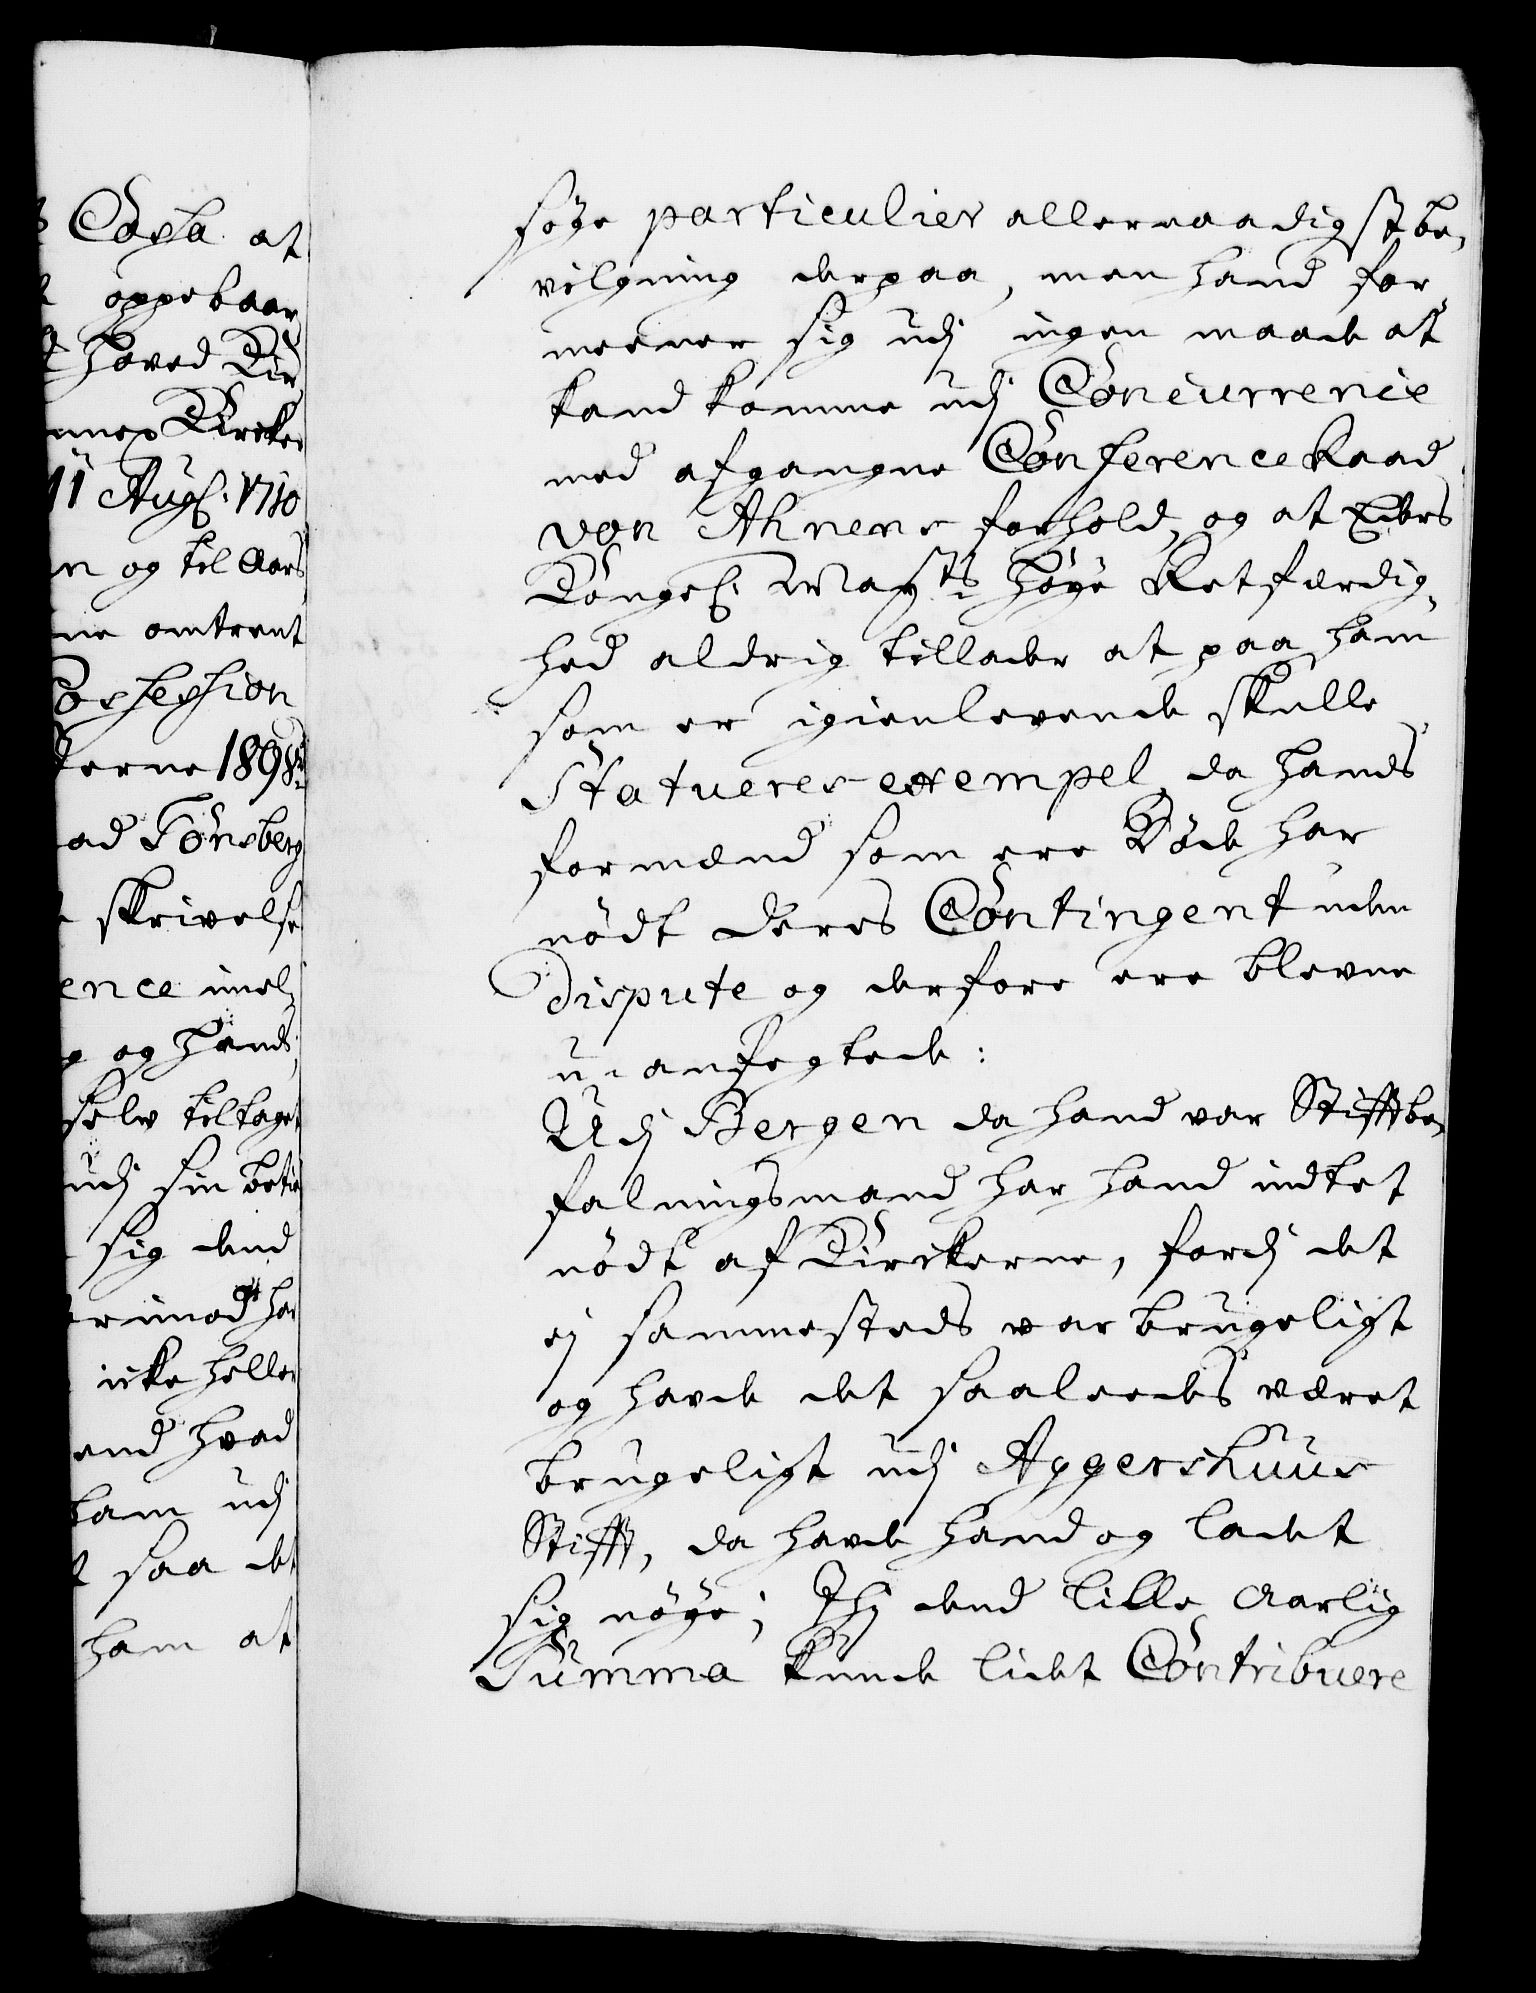 Cassa at
oppebaar
Hoved Kir
nnex Kircker
11 Aug. 1710
n og til Aars
ne omtrent
Possession
terne 1898
ad Tönsberg
skrivelse
ence imel-
og hands
selv tiltaget
udj sin betie
sig dend
erimod har
icke heller
end hvad
kam udj
t saa det
ham at
söge particulier allernaadigst be-
vilgning derpaa, men hand for-
meener sig udj ingen maade at
kand komme udj Concurrence
med afgangne Conference Raad
von Ahnens forhold, og at Eders
Kongel. Mayts höye Retfærdig-
hed aldrig tillader at paa ham
som er igienlevende skulle
Statueres exempel, da hands
formænd som ere Döde har
nödt deres Contingent uden
Dispute og derfore ere blevne
u-anfegtede:
Udj Bergen da hand var Stifftbe-
falningsmand har hand indtet
nödt af Kirckerne, fordj det
ej sammesteds var brugeligt
og havde det saaleedes været
brugeligt udj Aggershuus
Stifft, da havde hand og ladet
sig nöye; Thj dend lille Aarlig
Summa kunde lidet Contribuere